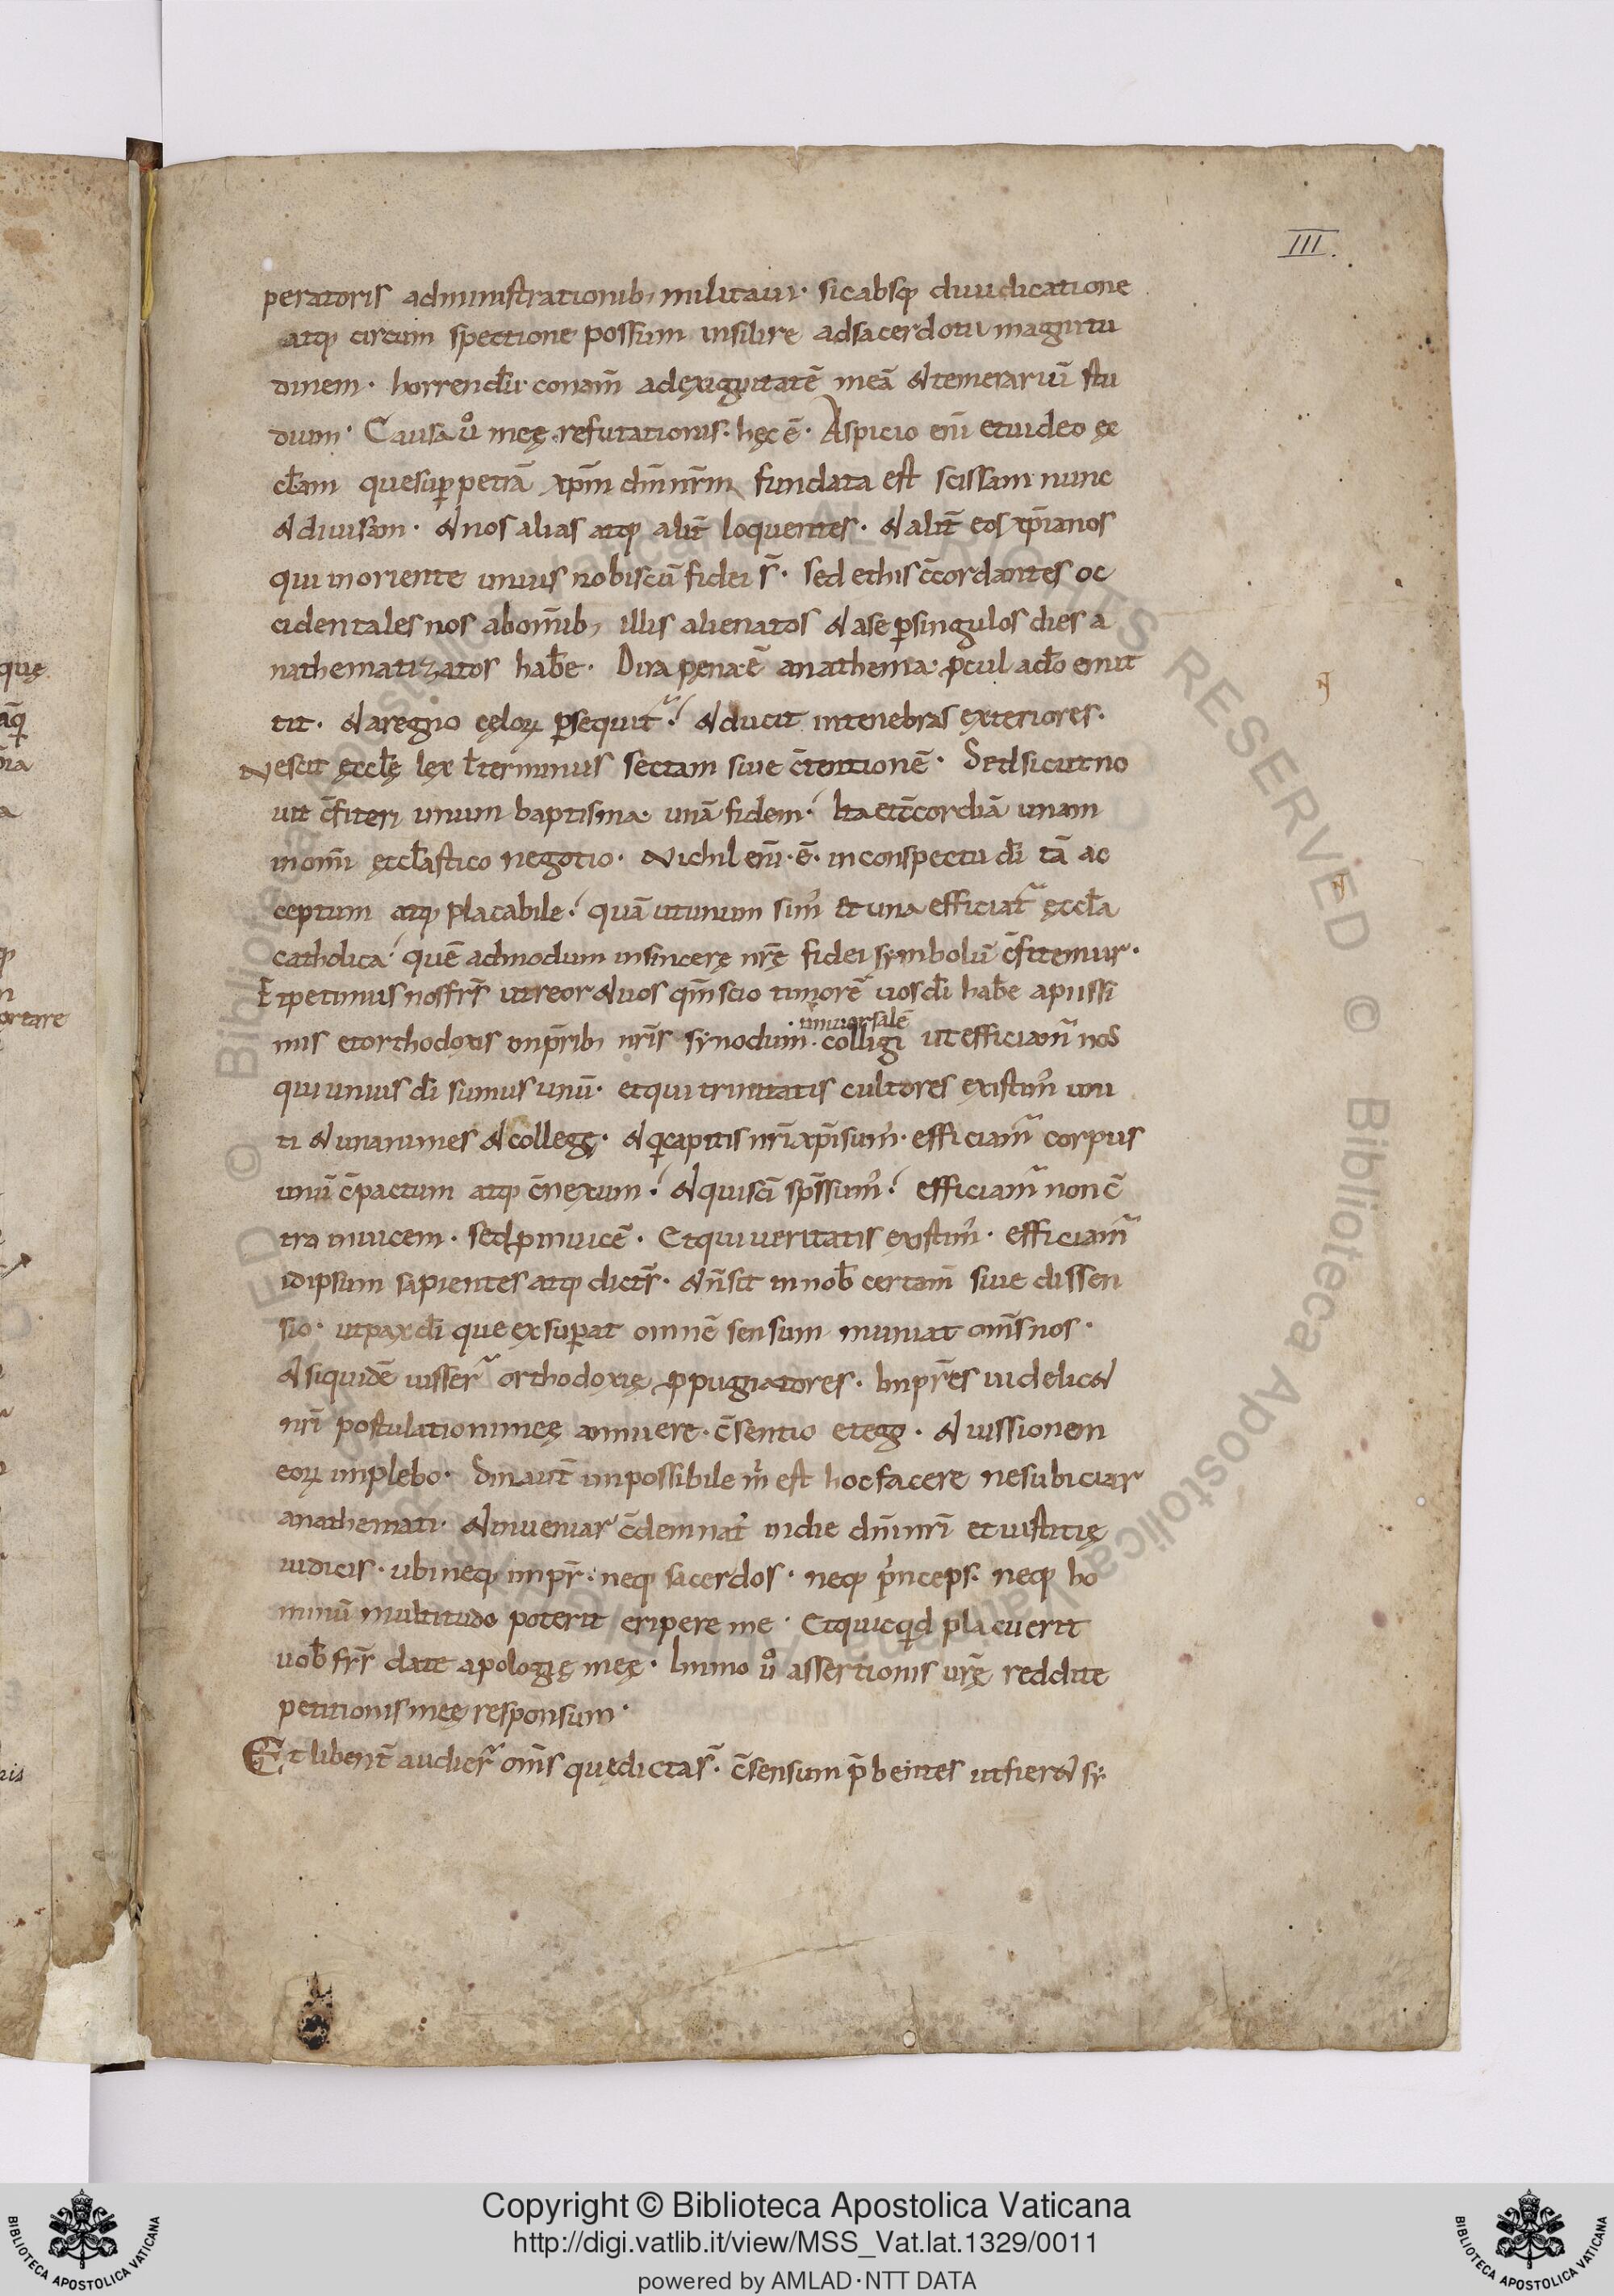 III.
peratoris administrationib; militaui· sic absq; diiudicatione
atq; circum spectione possum insilire adsacerdotii magnitu
dinem· horrendū conam̄ adexiguitatē meā & temerariū stu
dium· Causa ů meę refutationis· hęc ē· Aspicio enī etuideo ęc
cłam quesup petrā xp̄m dn̄m nr̄m fundata est scissam nunc
& diuisam· & nos alias atq; alit̄ loquentes· & alit̄ eos xp̄ianos
qui inoriente unius nobiscū fidei s̄· sed ethis c̄cordantes oc
cidentales nos abom̄ib; illis alienatos & ase psingulos dies a
nathematizatos habe· Dira pęna ē anathema· pcul ado emit
tit· & aregno cęloꝝ psequit̄· & ducit intenebras exteriores·
Nescit ęcclę lex ł terminus sectam siue c̄tentionē· Sed sicut no
uit c̄fiteri unum baptisma· unā fidem· Ita et c̄cordiā unam
inomī ęccłastico negotio· Nichil enī·ē· inconspectu dī tā ac
ceptum atq; placabile· quā utunum sim' et una efficiat̄ ęccła
catholica· quē admodum insincerę nr̄ę fidei symbolū c̄fitemur·
Et petimus nos fr̄s utreor & uos qm̄ scio timorē uos dī habe apiissi
· uniuersalē
mis etorthodoxis imp̄rib; nr̄is synodum· colligi ut efficiam̄ nos
qui unius dī sumus unū· etqui trinitatis cultores existim' uni
ti & unanimes & collegę· & qi capitis nr̄i xp̄i sum'· efficiam̄ corpus
unū c̄pactum atq; c̄nexum· & qui sc̄i sp̄s sum'· efficiam̄ non c̄
tra inuicem· sed p inuicē· Etqui ueritatis existim'· efficiam̄
idipsum sapientes atq; dictr̄· & n̄ sit in nob̄ certam̄ siue dissen
sio· utpax dī que exsupat omnē sensum muniat om̄s nos·
& siquidē iusser̄ orthodoxię ppugnatores· Imp̄res uidelic&
nr̄i postulationi meę annuere· c̄sentio etego· & iussionem
eoꝝ implebo· Sin aut̄ impossibile m̊ est hoc facere nesubiciar
anathemati· & inueniar c̄demnat' indie dn̄i nr̄i et iustitię
iudicis· ubi neq; impr̄· neq; sacerdos· neq; p̊nceps· neq; ho
minū multitudo poterit eripere me· Etquicq̊d placuerit
uob̄ fr̄s date apologię meę· Immo ů assertionis ur̄ę reddite
petitionis meę responsum·
Et libent̄ audier̄ om̄s quę dicta s̄· c̄sensum p̄bentes utfier& sy
Copyright © Biblioteca Apostolica Vaticana
http://digi.vatlib.it/view/MSS_Vat.lat.1329/0011
powered by AMLAD·NTT DATA